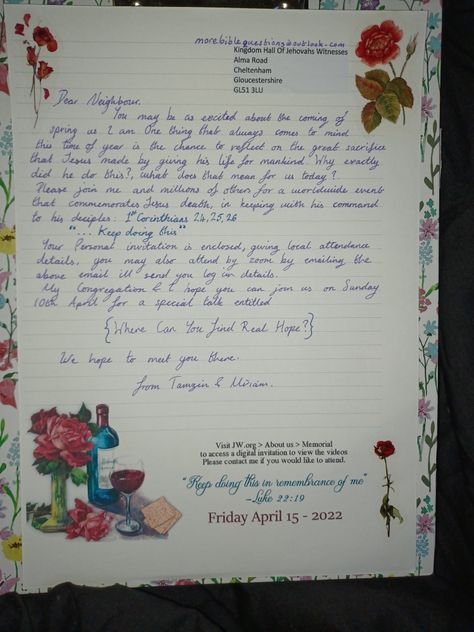 morebiblequestions@outlook.com
Kingdom Hall Of Jehovahs Witnesses
Alma Road
Cheltenham
Gloucestershire
GL51 3LU
Dear Neighbour.
You may be as excited about the coming of
spring as I am. One thing that always comes to mind
this time of year is the chance to reflect on the great sacrifice
that Jesus made by giving his life for mankind. Why exactly
did he do this?, What does that mean for us today?.
Please join me and millions of others for a worldwide event
that commemorates Jesus death, in keeping with his command
to his deciples: 1st Corinthians 24, 25, 26
"... Keep doing this"
Your Personal invitation is enclosed, giving local attendance
details, you may also attend by zoom by emailing the
above email ill send you log in details.
My Congregation & I hope you can join us on Sunday
10th April for a special talk entitled
{Where Can You Find Real Hope?}
We hope to meet you there.
from Tamzin & Miriam.
Visit JW.org > About us > Memorial
to access a digital invitation to view the videos
Please contact me if you would like to attend.
"Keep doing this in remembrance of me"
~Luke 22:19
Friday April 15 - 2022